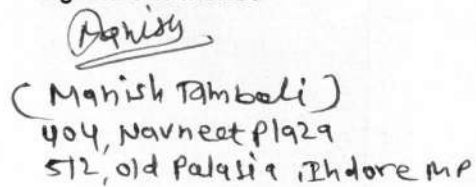 Manish
(Manish Tamboli)
404, Navneet Plaza
5/2, old Palasia, Indore MP